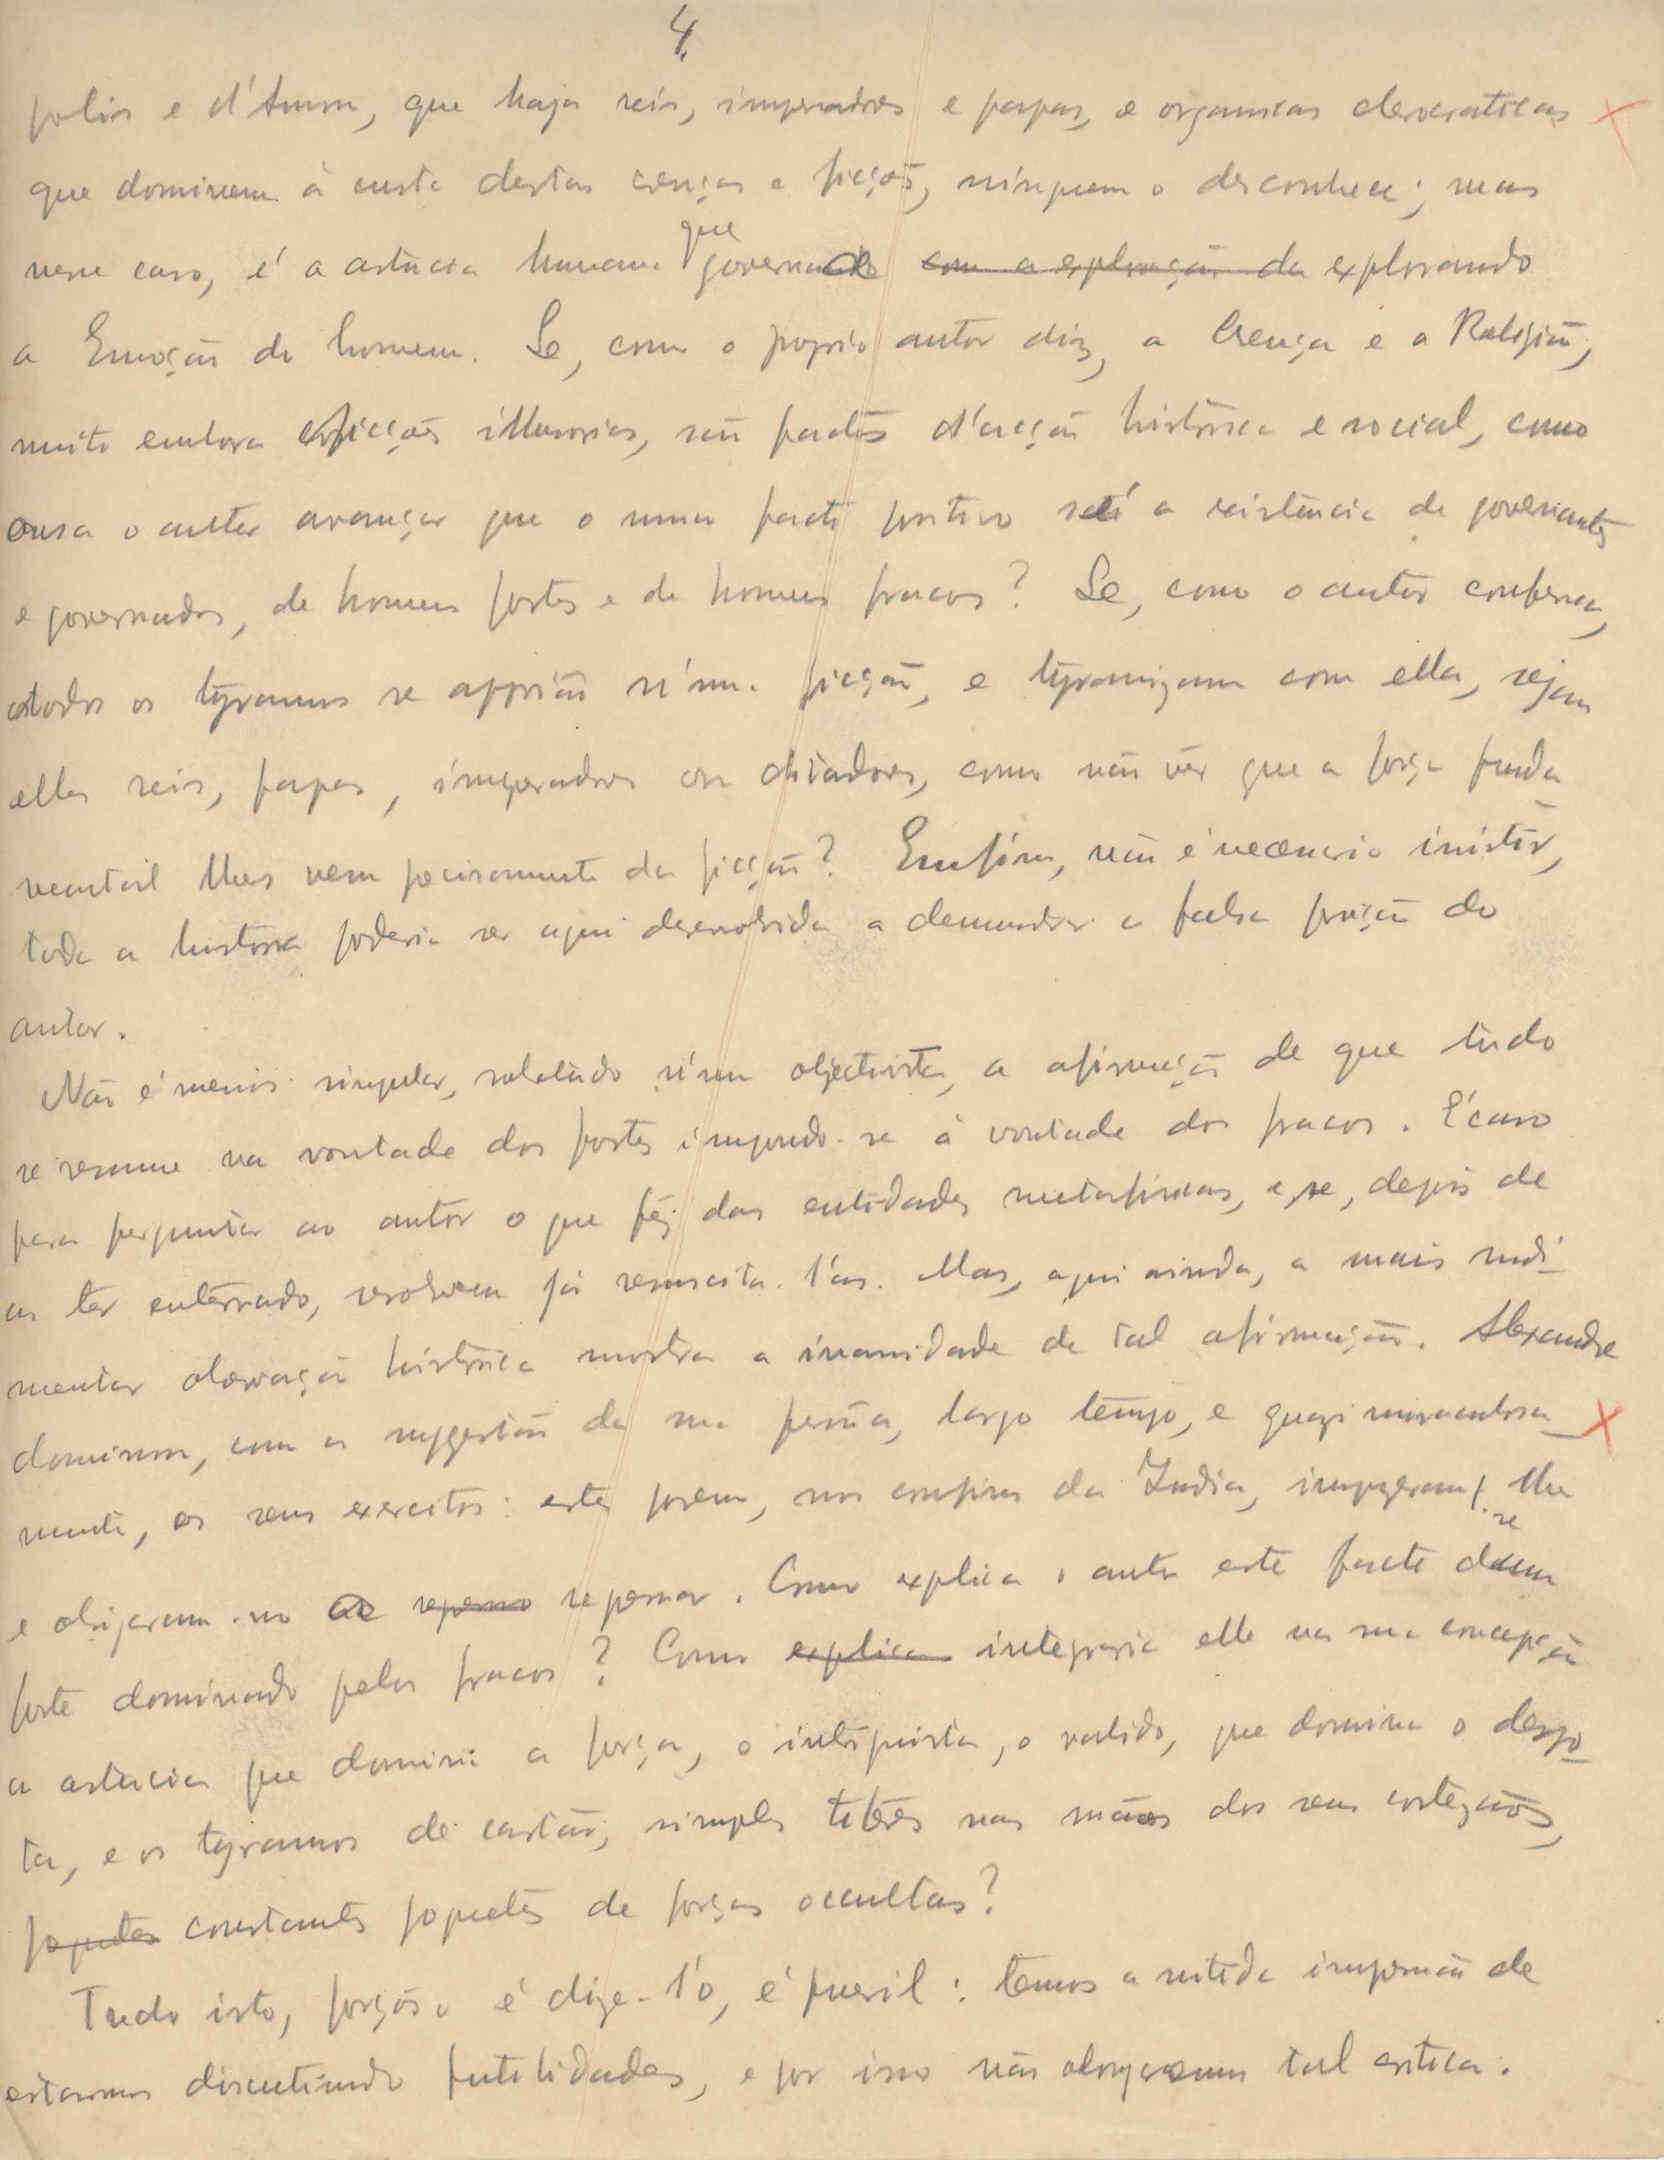 4.
polis e d'Amon, que haja reis, imperadores e papas, e organisas
que dominem á custa destas crenças e ficções, ninguem o desconhece; mas
nesse caso, é a astucia humana que governa com a exploração da explorando
a Emoção do homem. Se, como o proprio autor diz, a Crença e a Religião,
muito embora ficções illusorias, são factos d'acção histórica e social, como
ousa o auctor avançar que o unico facto positivo é a existencia de governantes
e governados, de homens fortes e de homens fracos? Se, como o autor confessa,
todos os tyrannos se appoião n'uma ficção, e tyrannizam com ella, sejam
elles reis, papas, imperadores ou dictadores, como não vêr que a força funda
mental lhes vem precisamente da ficção? Emfim, não é necessario insistir,
toda a história poderia ser aqui desenvolvida a demonstrar a falsa posição do
autor.
Não é menos singular, sobretudo n'um objectivista, a afirmação de que tudo
se resume na vontade dos fortes impondo-se á vontade dos fracos. É caso
para perguntar ao autor o que fez das entidades metafisicas, e se, depois de
as ter enterrado, resolveu já resuscita-l'as. Mas, aqui ainda, a mais rudi-
mentar observação histórica mostra a inanidade de tal afirmação. Alexandre
dominou, com a suggestão da sua pessoa, largo tempo, e quazi miraculosa-
mente, os seus exercitos: estes porem, nos confins da India, impuzeram-se-lhe
e obrigaram-no a regressar. Como explica o autor este facto dum
forte dominado pelos fracos? Como explica integraria elle na sua concepção
a astucia que domina a força, o intriguista, o valido, que domina o despo-
ta, e os tyrannos de cartão, simples titéres nas mãos dos seus cortezãos,
joguetes constantes joguetes de forças occultas?
Tudo isto, forçoso é dize-l'o, é pueril: temos a nitida impressão de
estarmos discutindo futilidades, e por isso não alongaremos tal critica.